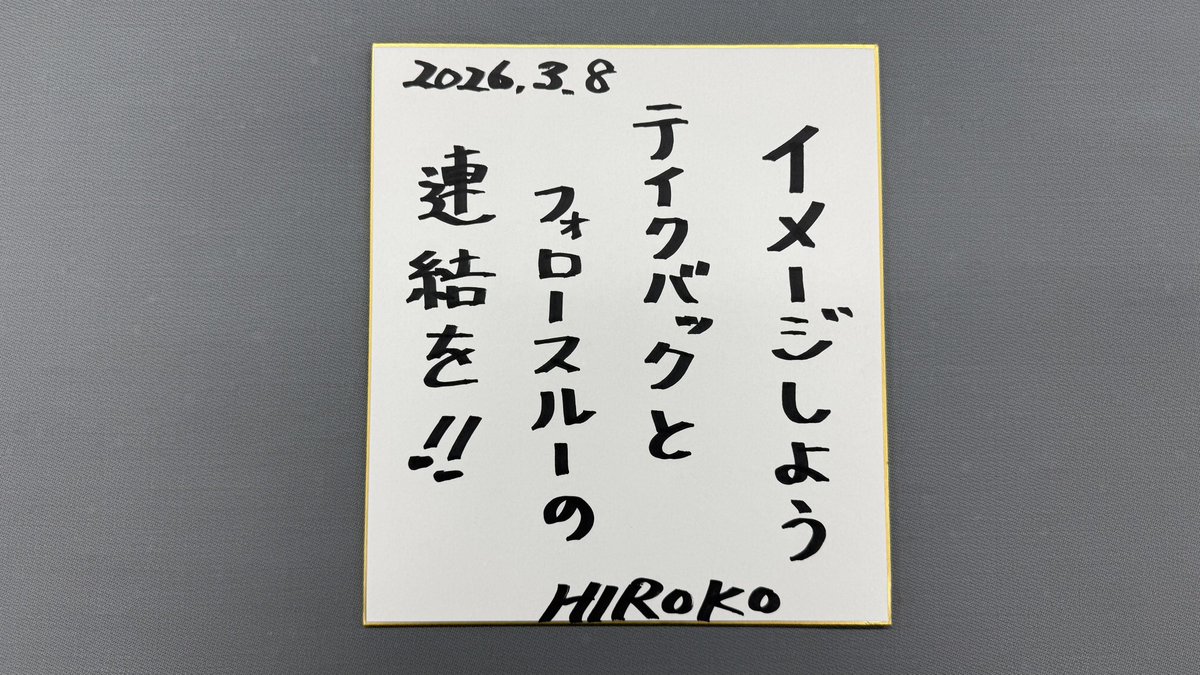 2026.3.8
イメージしよう
テイクバックと
フォロースルーの
連結を!!
HIROKO